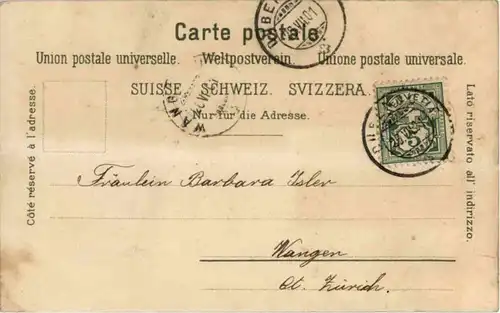 Carte postale.
Union postale universelle. Weltpostverein. Unione postale universale.
SUISSE. SCHWEIZ. SVIZZERA.
Nur für die Adresse.
Côté réservé à l'adresse.
Lato riservato all' indirizzo.
WANG
HELVETIA
5
Fräulein Barbara Isler
Wangen
Ct. Zürich.